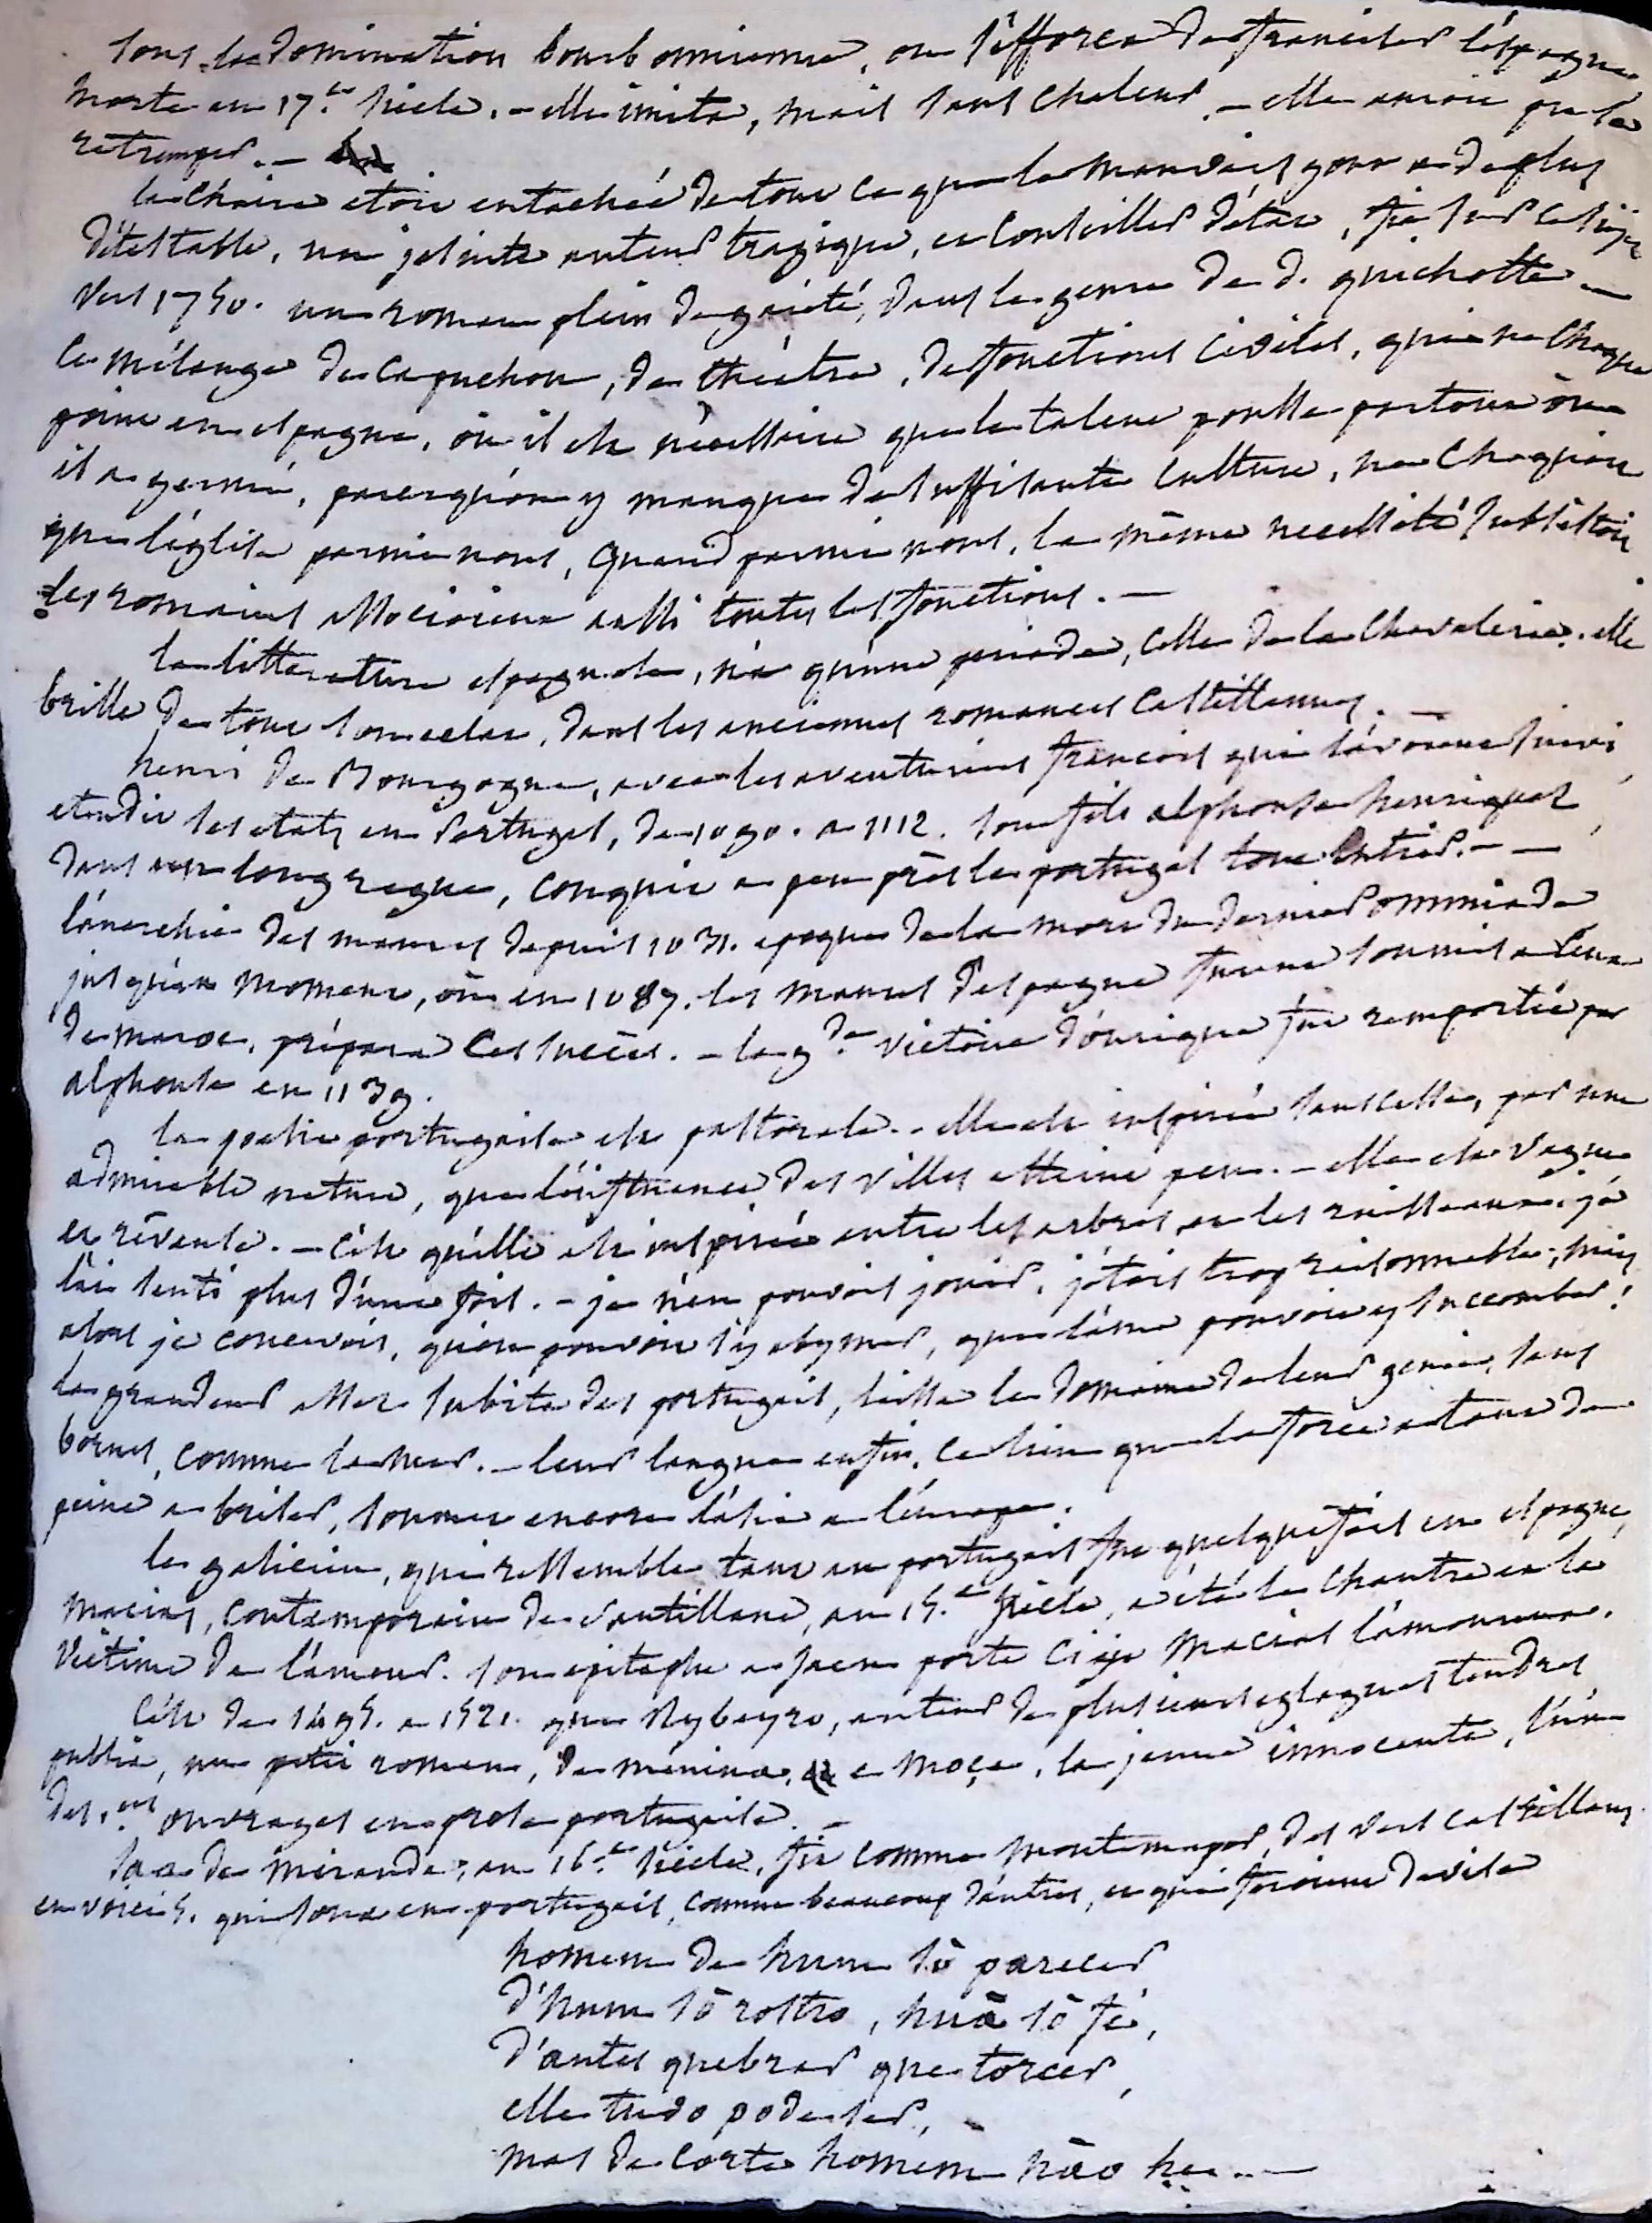 sous la domination bourbonnienne, on s'efforca de franciser l'espagne,
morte au 17.e siecle. - elle imita, mais sans chaleur. - elle auroit pu se
retremper. -
la chaire etoit entachée de tout ce que le mauvais gout a de plus
détestable, un jesuite auteur tragique, et conseiller d'état, fit sur ce sujet
vers 1750. un roman plein de gaieté, dans le genre de d. quichotte. -
ce mélange de capuchon, de théatre, de fonctions civiles, qui ne choque
point en espagne, où il est nécessaire que le talent pousse partout où
il a germé, parcequ'on y manque de suffisante culture, ne choquoit
que l'église parmi nous, quand parmi nous, la même necessité subsistoit
les romains associoient aussi toutes les fonctions. -
la litterature espagnole, n'a qu'une periode, celle de la chevalerie. elle
brille de tout son eclat, dans les anciennes romances castillannes. -
henri de Bourgogne, avec les aventuriers francois qui l'avoient suivi,
etendit ses etats en Portugal, de 1090. a 1112. son fils alphonse henriquez,
dans un long regne, conquit a peu près le portugal tout entier. - -
l'anarchie des maures depuis 1031. epoque de la mort du dernier ommiade
jusqu'au moment, où en 1087. les maures d'espagne furent soumis a ceux
de maroc, prépara ces succès. - la g.de victoire d'ourique fut remportée par
alphonse en 1139.
la poesie portugaise est pastorale. - elle est inspirée sans cesse, par une
admirable nature, que l'influence des villes atteint peu. - elle est vague
et rêveuse. - c'est qu'elle est inspirée entre les arbres et les ruisseaux. je
l'ai senti plus d'une fois. - je n'en pouvois jouir, j'étois trop raisonnable; mais
alors je concevois, qu'on pouvoit s'y abymer, que l'ame pouvoit y succomber!
la grandeur assez subite des portugais, laissa le domaine de leur genie, sans
bornes, comme la mer. - leur langue enfin, ce lien que la force a tant de
peine a briser, soumet encore l'asie a l'europe.
le galicien, qui ressemble tant au portugais fut quelquefois en espagne,
macias, contemporain de Santillane, au 15.e siècle, a été le chantre et la
victime de l'amour. son epitaphe a Jaen porte ci git macias l'amoureux.
C'est de 1495. a 1521. que Rybeyro, auteur de plusieurs eglogues tendres,
publia, un petit roman, de menina, e moça, la jeune innocente, l'un
des 1.ers ouvrages en prose portugaise. -
Saa de miranda, au 16.e siècle, fit comme montemayor, des vers castillans.
en voici 5. qui sont en portugais, comme beaucoup d'autres, et qui feroient devise
homem de hum só parecer
d'hum só rostro, huã só fé,
d'antes quebrar que torcer,
elle tudo pode ser,
mas de corte homem não he. -